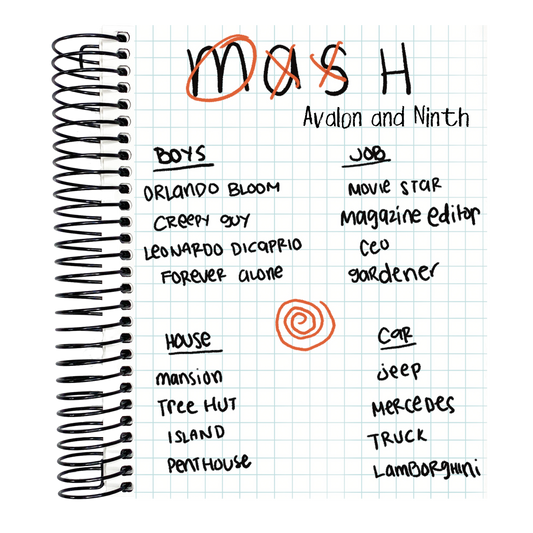 mash
Avalon and Ninth
BOYS
ORLANDO BLOOM
CREEPY GUY
LEONARDO DICAPRIO
FOREVER ALONE
JOB
MOVIE STAR
magazine editor
CEO
gardener
HOUSE
mansion
TREE HUT
ISLAND
PENTHOUSE
CAR
jeep
MERCEDES
TRUCK
LAMBORGHINI